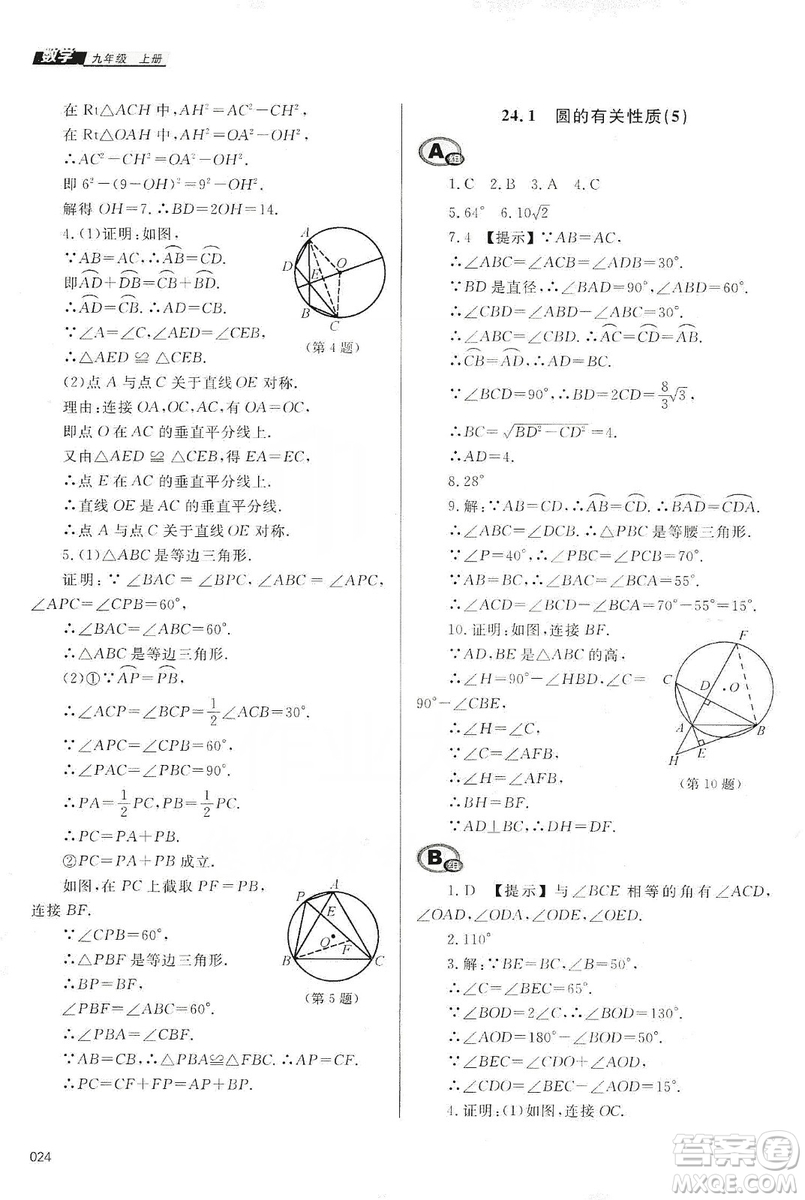 数学 九年级 上册
在 Rt△ACH 中，AH²＝AC²－CH²，
在 Rt△OAH 中，AH²＝OA²－OH²，
∴AC²－CH²＝OA²－OH²，
即 6²－(9－OH)²＝9²－OH²，
解得 OH＝7. ∴BD＝2OH＝14.
4. (1)证明：如图，
∵AB＝AC，∴A͡B＝C͡D，
即A͡D＋D͡B＝C͡B＋B͡D，
∴A͡D＝C͡B. ∴AD＝CB.
又∵∠A＝∠C，∠AED＝∠CEB，
∴△AED≌△CEB.
(2)点 A 与点 C 关于直线 OE 对称.
理由：连接 OA，OC，AC，有 OA＝OC，
即点 O 在 AC 的垂直平分线上.
又由△AED≌△CEB，得 EA＝EC，
∴点 E 在 AC 的垂直平分线上，
∴直线 OE 是 AC 的垂直平分线，
∴点 A 与点 C 关于直线 OE 对称.
A
D
E
O
B
C
(第 4 题)
5. (1)△ABC 是等边三角形.
证明：∵∠BAC＝∠BPC，∠ABC＝∠APC，
∠APC＝∠CPB＝60°，
∴∠BAC＝∠ABC＝60°.
∴△ABC 是等边三角形.
(2)①∵A͡P＝P͡B，
∴∠ACP＝∠BCP＝1/2∠ACB＝30°.
∵∠APC＝∠CPB＝60°，
∴∠PAC＝∠PBC＝90°.
∴PA＝1/2PC，PB＝1/2PC.
∴PC＝PA＋PB.
②PC＝PA＋PB 成立.
如图，在 PC 上截取 PF＝PB，
连接 BF.
∵∠CPB＝60°，
∴△PBF 是等边三角形.
∴BP＝BF，
∠PBF＝∠ABC＝60°.
∴∠PBA＝∠CBF.
∵AB＝CB，∴△PBA≌△FBC.
∴PA＝CF. ∴PC＝PA＋PB.
P
A
E
O
F
B
C
(第 5 题)
024
24.1 圆的有关性质(5)
A组
1. C 2. B 3. A 4. C
5. 64° 6. 10√2
7. 4 【提示】∵AB＝AC，
∴∠ABC＝∠ACB＝∠ADB＝30°.
∵BD 是直径，∴∠BAD＝90°，∠ABD＝60°.
∴∠ABC＝∠CBD＝30°. ∴A͡C＝C͡D＝A͡B.
∴C͡B＝A͡D. ∴AD＝BC.
∵∠BCD＝90°，∴BD＝2CD＝8/3√3，
∴BC＝√(BD²－CD²)＝4.
∴AD＝4.
8. 28°
9. 解：∵AB＝CD，∴A͡B＝C͡D. ∴B͡AD＝C͡DA.
∴∠PBC＝∠C. ∴△PBC 是等腰三角形.
∵∠P＝40°，∴∠PBC＝∠C＝70°.
∵BD＝BC，∴∠BCA＝∠BAC＝55°.
∴∠ABD＝∠ACD＝70°－55°＝15°.
10. 证明：如图，连接 BF.
∵AD，BE 是△ABC 的高，
∴∠H＝90°－∠HBD，∠C＝
90°－∠CBE，
∴∠H＝∠C.
∵∠C＝∠AFB，
∴∠H＝∠AFB.
∴BH＝BF.
∵AD⊥BC，∴DH＝DF.
F
C
D
O
A
B
E
H
(第 10 题)
B组
1. D 【提示】与∠BCE 相等的角有∠ACD，
∠OAD，∠ODA，∠ODE，∠OED.
2. 110°
3. 解：∵BE＝BC，∠B＝50°，
∴∠C＝∠BEC＝65°.
∵∠BOD＝2∠C，∴∠BOD＝130°.
∴∠AOD＝180°－∠BOD＝50°.
∵∠BEC＝∠CDO＋∠AOD，
∴∠CDO＝∠BEC－∠AOD＝15°.
4. 证明：(1)如图，连接 OC.
答案圈
MXQE.COM